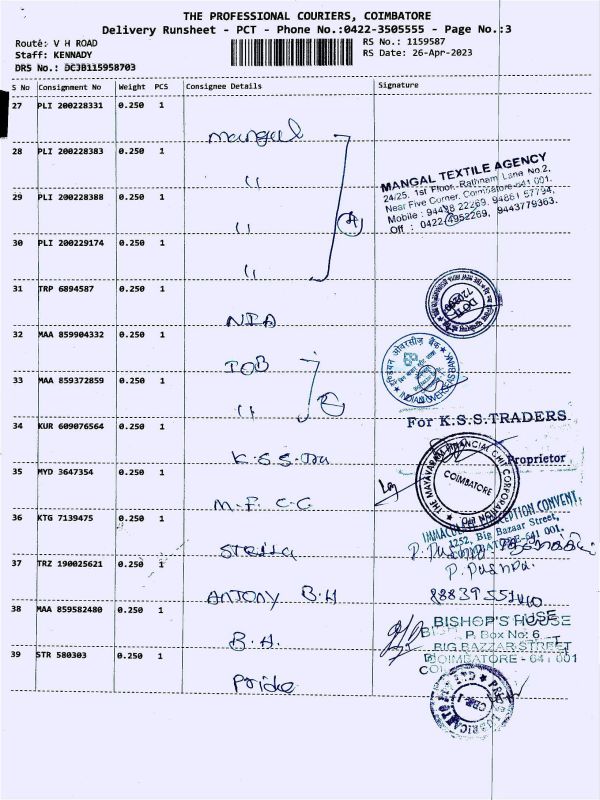 THE PROFESSIONAL COURIERS, COIMBATORE
Delivery Runsheet - PCT - Phone No.:0422-3505555 - Page No.:3
Route: V H ROAD
Staff: KENNADY
DRS No.: DCJB115958703
RS No.: 1159587
RS Date: 26-Apr-2023
S No Consignment No Weight PCS Consignee Details Signature
27 PLI 200228331 0.250 1 Mangal
28 PLI 200228383 0.250 1 "
29 PLI 200228388 0.250 1 "
30 PLI 200229174 0.250 1 "
4
MANGAL TEXTILE AGENCY
24/25, 1st Floor, Rathnam Lane No.2,
Near Five Corner, Coimbatore-641 001.
Mobile : 94438 22269, 94861 57794,
Off : 0422-4952269, 9443779363.
31 TRP 6894587 0.250 1 NIA
32 MAA 859904332 0.250 1 IOB
33 MAA 859372859 0.250 1 "
2
इंडियन ओवरसीज़ बैंक
INDIAN OVERSEAS BANK
34 KUR 609076564 0.250 1 K.S.S. Tra
For K.S.S.TRADERS
Proprietor
35 MYD 3647354 0.250 1 M.F.C.C
THE MAYAVARAM FINANCIAL CHIT CORPORATION
COIMBATORE
36 KTG 7139475 0.250 1 Stella
IMMACULATE CONCEPTION CONVENT,
1252, Big Bazaar Street,
COIMBATORE-641 001.
37 TRZ 190025621 0.250 1 ANTONY B.H
P. Pushpa.
38 MAA 859582480 0.250 1 B.H.
BISHOP'S HOUSE
P. Box No: 6
BIG BAZZAR STREET
COIMBATORE - 641 001
39 STR 580303 0.250 1 Pride